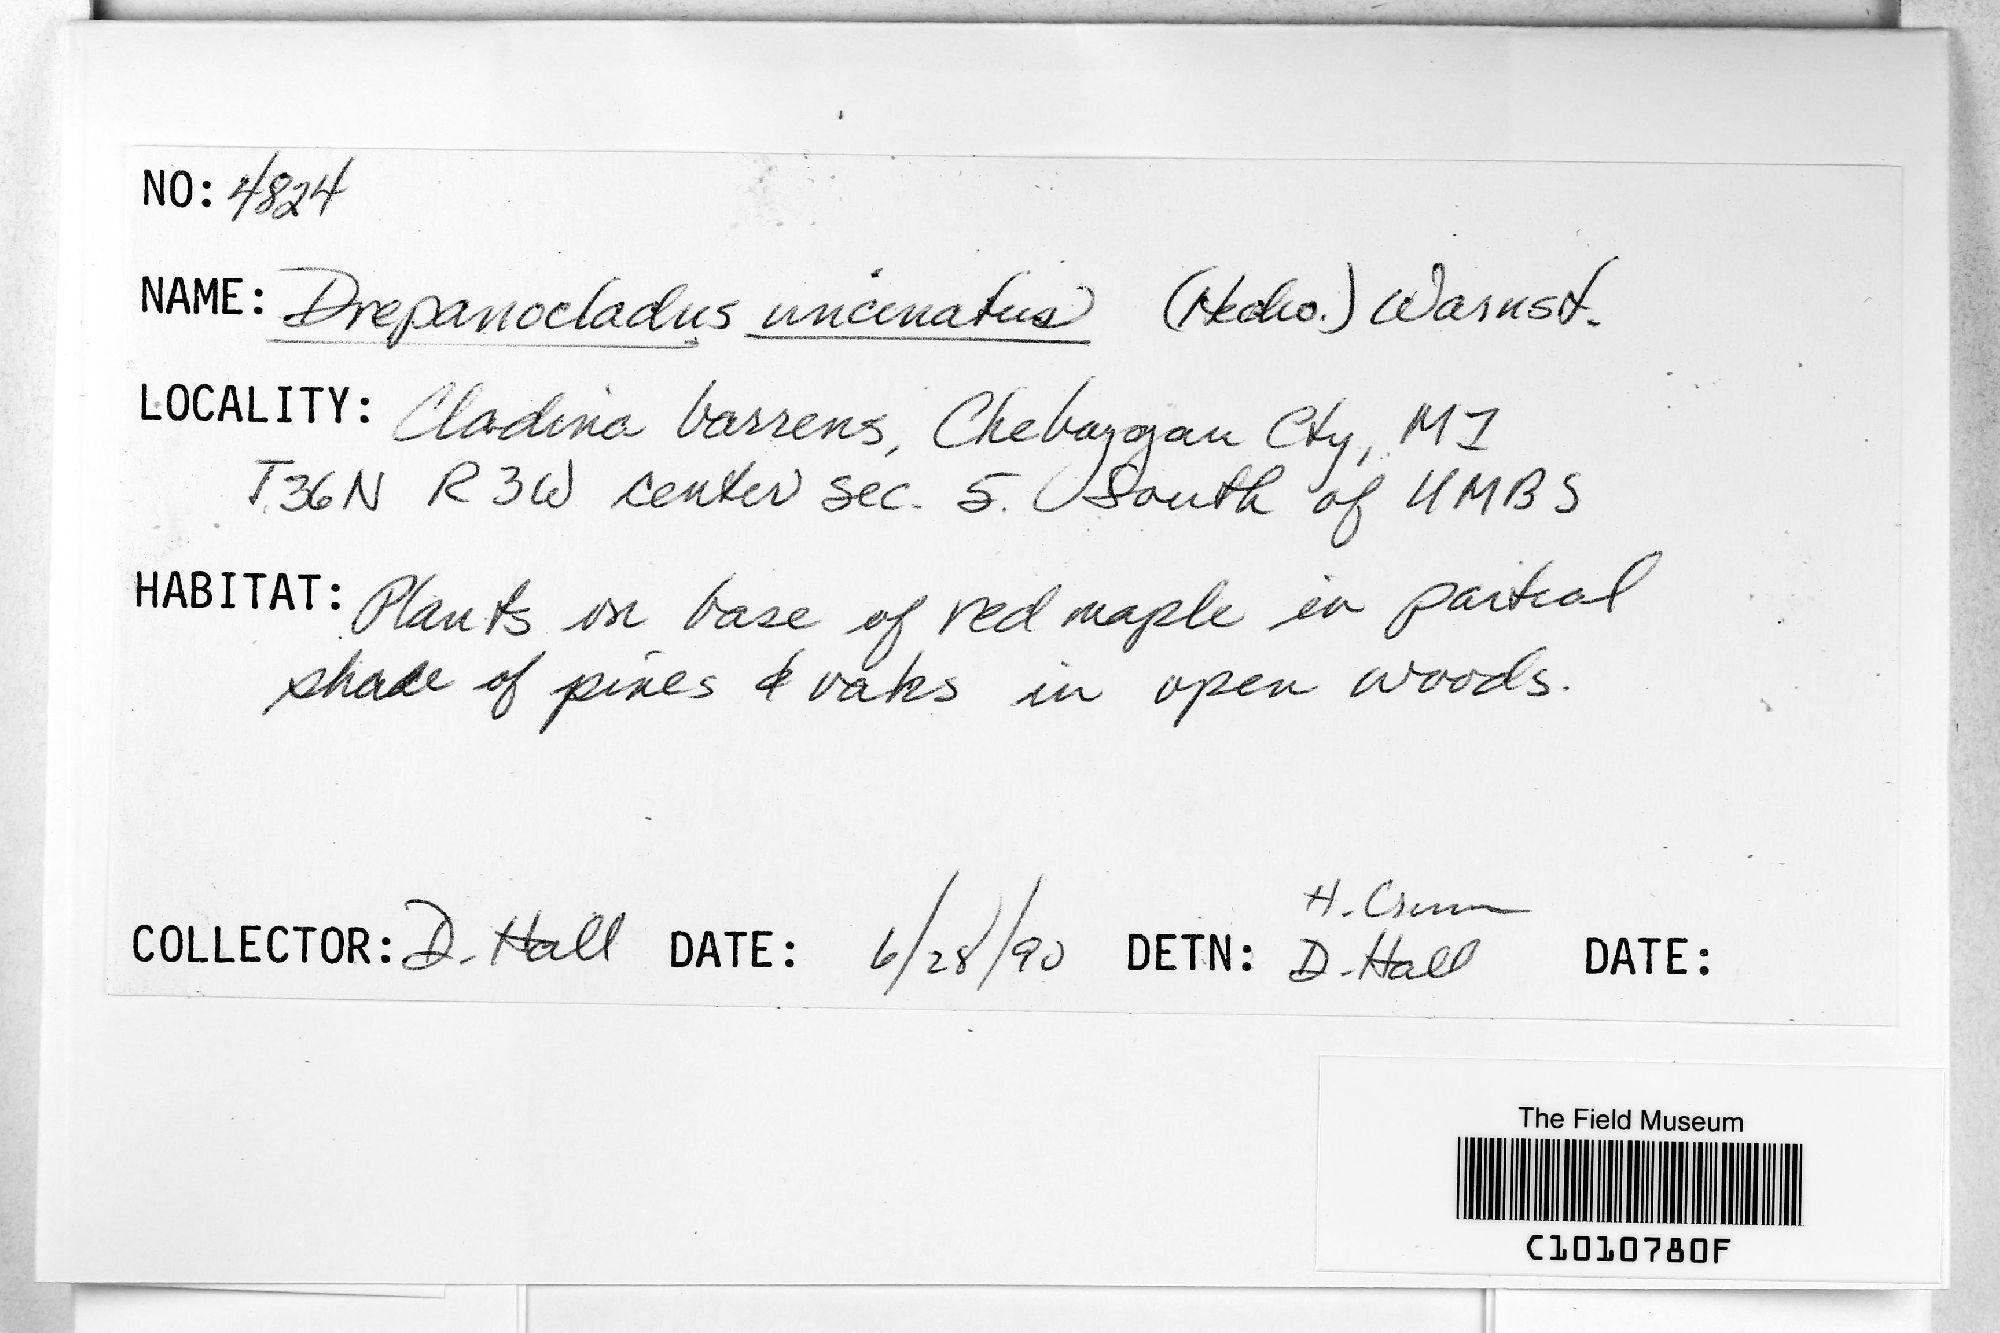 NO: 4824
NAME: Drepanocladus uncinatus (Hedw.) Warnst.
LOCALITY: Cladina barrens, Cheboygan Cty, MI
T36N R3W center sec. 5. South of UMBS
HABITAT: Plants on base of red maple in partial
shade of pines & oaks in open woods.
H. Crum
COLLECTOR: D. Hall DATE: 6/28/90 DETN: D. Hall DATE:
The Field Museum
C1010780F